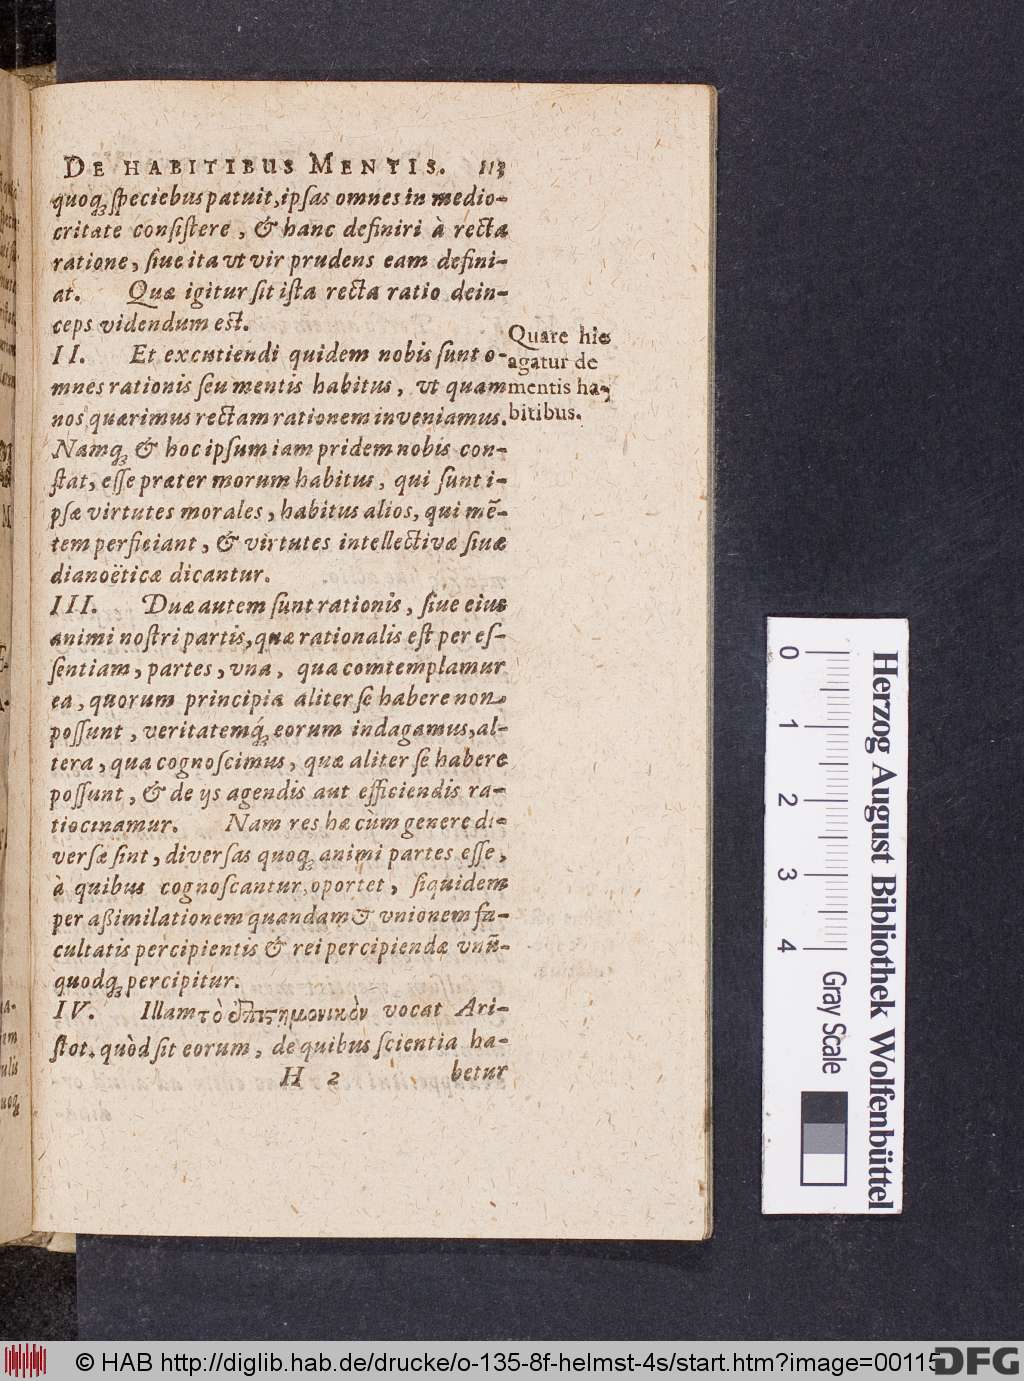 DE HABITIBUS MENTIS. 113
quoq; speciebus patuit, ipsas omnes in medio-
critate consistere, & hanc definiri à recta
ratione, siue ita vt vir prudens eam defini-
at. Quæ igitur sit ista recta ratio dein-
ceps videndum est.
II. Et excutiendi quidem nobis sunt o-
mnes rationis seu mentis habitus, vt quam
nos quærimus rectam rationem inveniamus.
Quare hic
agatur de
mentis ha-
bitibus.
Namq; & hoc ipsum iam pridem nobis con-
stat, esse præter morum habitus, qui sunt i-
psæ virtutes morales, habitus alios, qui mē-
tem perficiant, & virtutes intellectivæ siuæ
dianoëticæ dicantur.
III. Duæ autem sunt rationis, siue eius
animi nostri partis, quæ rationalis est per es-
sentiam, partes, vna, qua comtemplamur
ea, quorum principia aliter se habere non
possunt, veritatemq́; eorum indagamus, al-
tera, qua cognoscimus, quæ aliter se habere
possunt, & de ijs agendis aut efficiendis ra-
tiocinamur. Nam res hæ cùm genere di-
versæ sint, diversas quoq; animi partes esse,
à quibus cognoscantur, oportet, siquidem
per aßimilationem quandam & vnionem fa-
cultatis percipientis & rei percipiendæ vnū-
quodq; percipitur.
IV. Illam τὸ ἐπιστημονικὸν vocat Ari-
stot. quòd sit eorum, de quibus scientia ha-
H 2 betur
0 1 2 3 4
Gray Scale
Herzog August Bibliothek Wolfenbüttel
© HAB http://diglib.hab.de/drucke/o-135-8f-helmst-4s/start.htm?image=00115
DFG